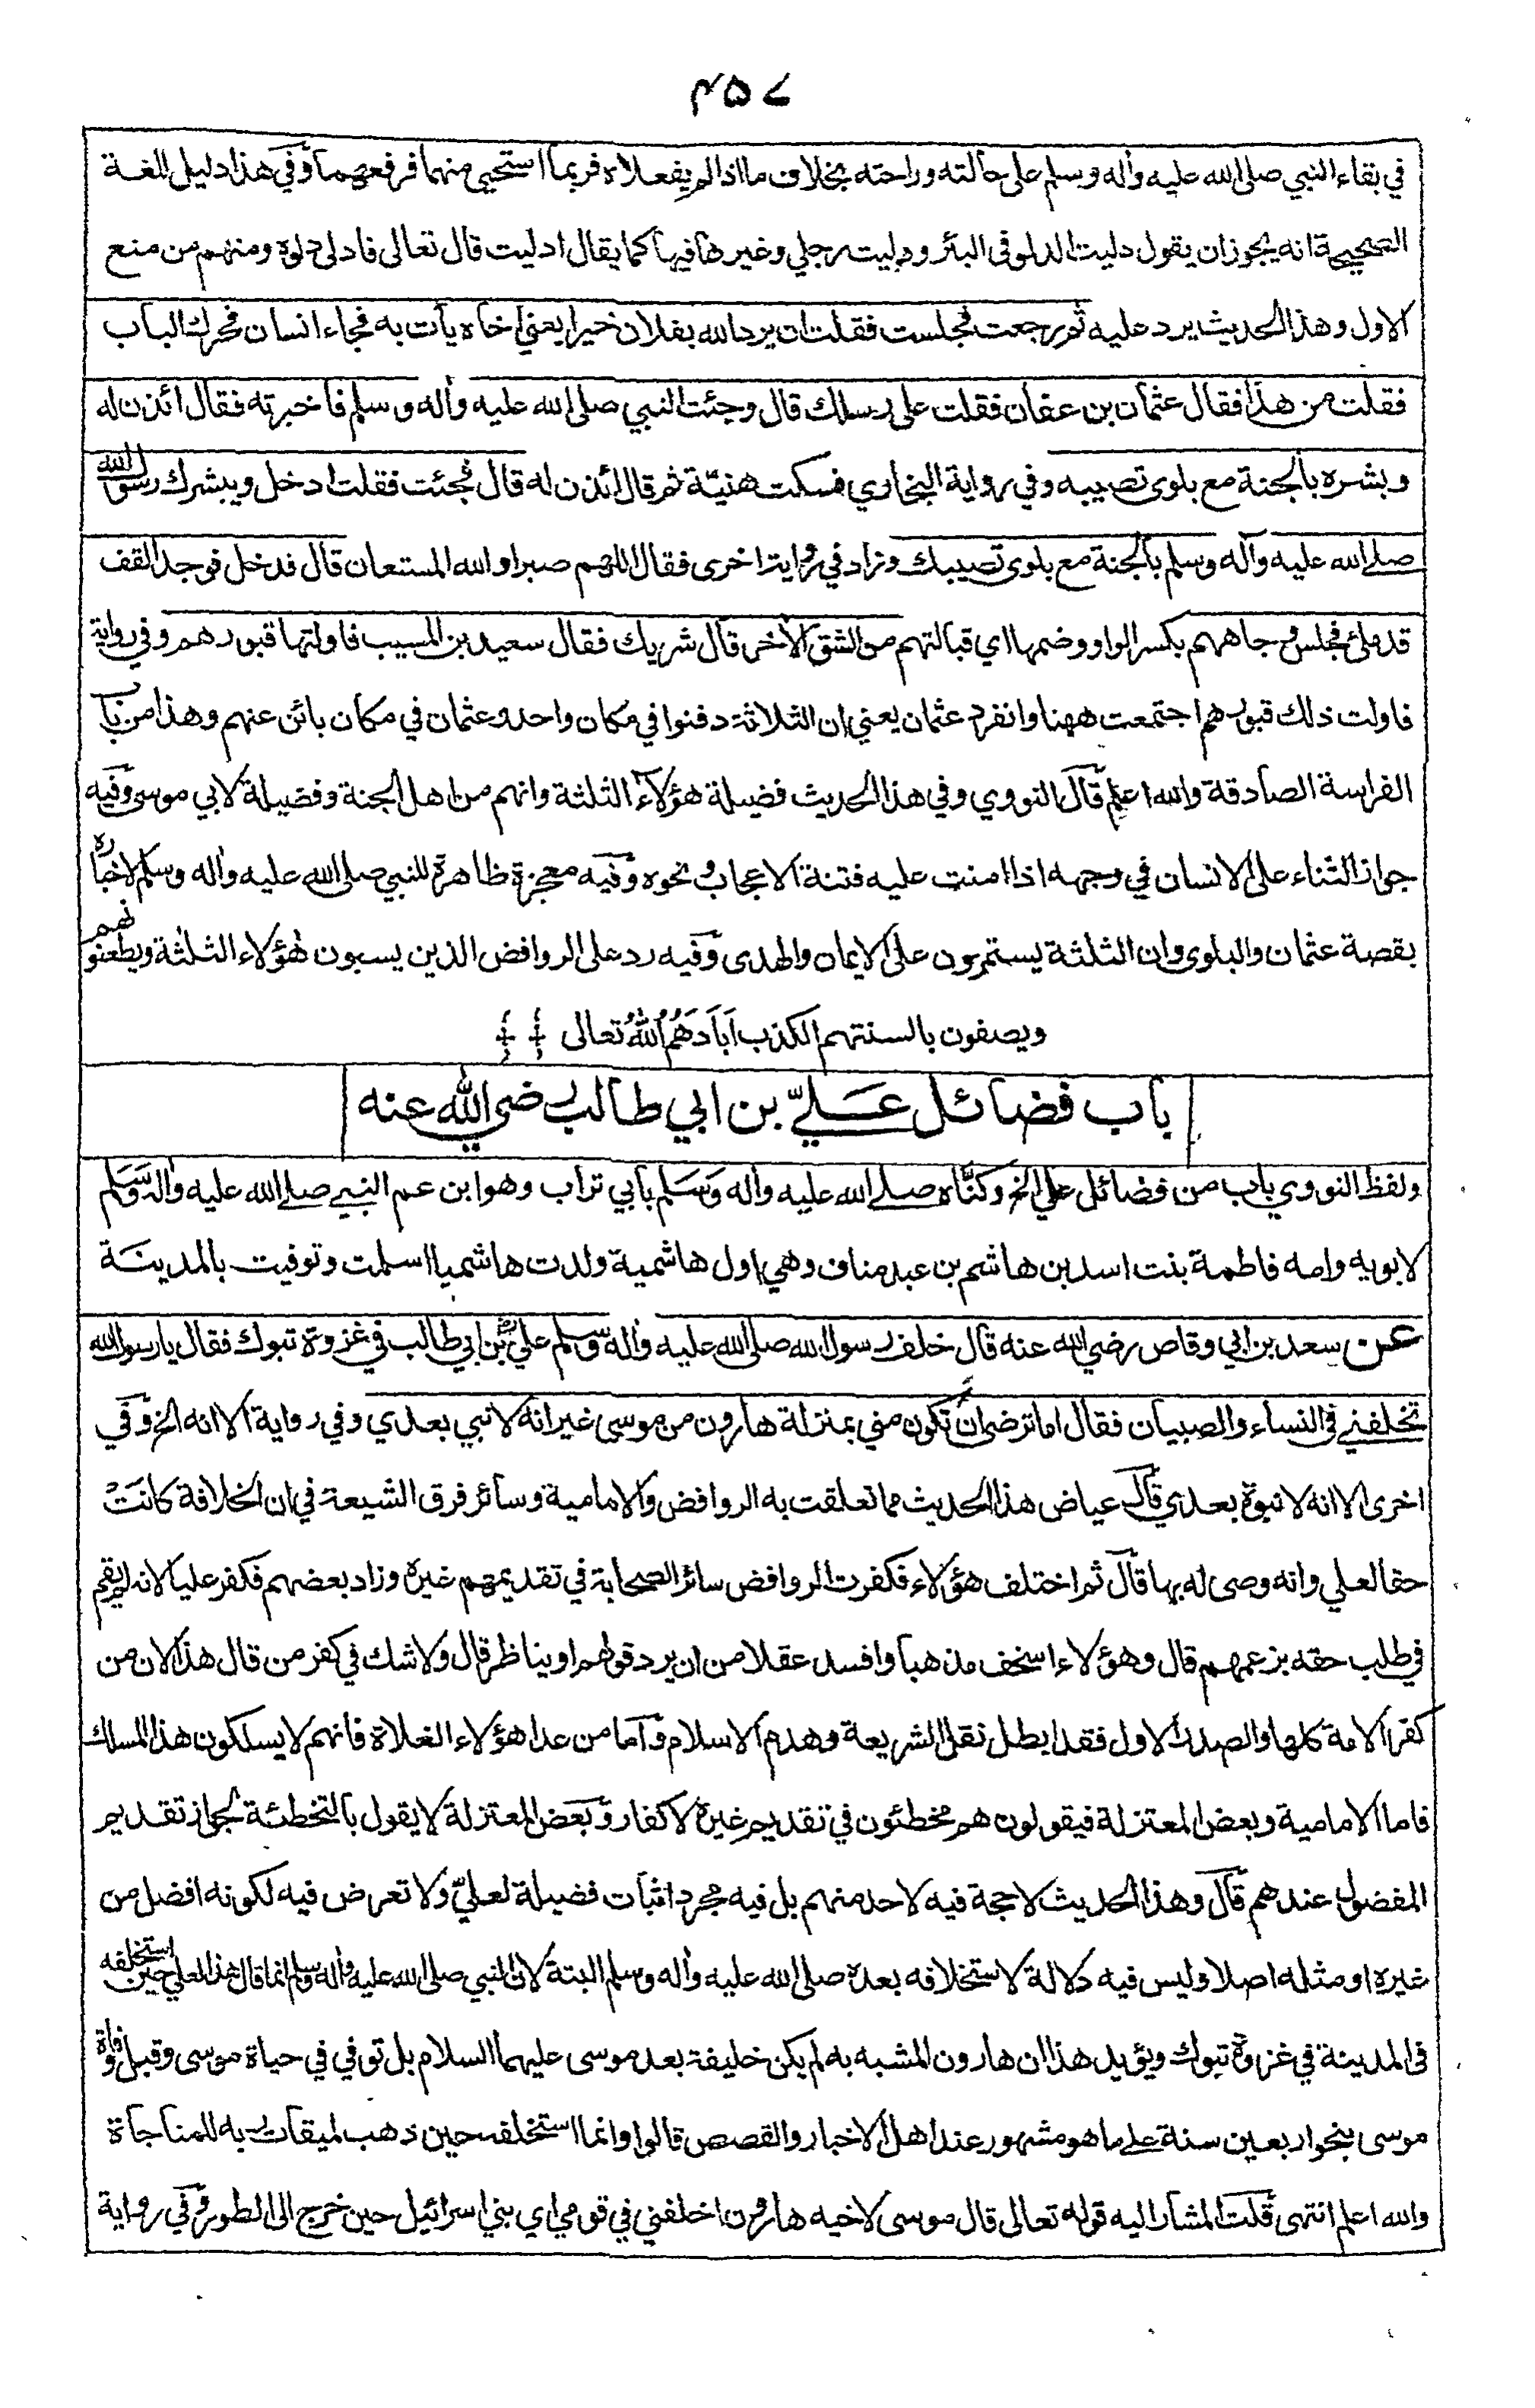 ٤٥٧
في بقاء النبي صلى الله عليه وأله وسلم على حالته وراحته بخلاف ما اذا لم يفعلاه فربما استحيى منهما فرفعهما وفي هذا دليل للغة
الصحيحة انه يجوز ان يقول دليت الدلو في البئر ودليت رجلي وغيرها فيها كما يقال ادليت قال تعالى فادلى دلوه ومنهم من منع
الاول وهذا الحديث يرد عليه ثم رجعت فجلست فقلت ان يرد الله بفلان خيرا يعني اخاه يأت به فجاء انسان فحرك الباب
فقلت من هذا فقال عثمان بن عفان فقلت على رسلك قال وجئت النبي صلى الله عليه وأله وسلم فاخبرته فقال ائذن له
وبشره بالجنة مع بلوى تصيبه وفي رواية البخاري فسكت هنيّة ثم قال ائذن له قال فجئت فقلت ادخل ويبشرك رسول الله
صلى الله عليه وآله وسلم بالجنة مع بلوى تصيبك وزاد في رواية اخرى فقال اللهم صبرا والله المستعان قال فدخل فوجد القف
قد ملئ فجلس وجاههم بكسر الواو وضمها اي قبالتهم من الشق الأخر قال شريك فقال سعيد بن المسيب فاولتها قبورهم وفي رواية
فاولت ذلك قبورهم اجتمعت ههنا وانفرد عثمان يعني ان الثلاثة دفنوا في مكان واحد وعثمان في مكان بائن عنهم وهذا من باب
الفراسة الصادقة والله اعلم قال النووي وفي هذا الحديث فضيلة هؤلاء الثلثة وانهم من اهل الجنة وفضيلة لابي موسى وفيه
جواز الثناء على الانسان في وجهه اذا امنت عليه فتنة الاعجاب ونحوه وفيه معجزة ظاهرة للنبي صلى الله عليه وأله وسلم لاخباره
بقصة عثمان والبلوى وان الثلثة يستمرون على الايمان والهدى وفيه رد على الروافض الذين يسبون هؤلاء الثلثة ويطعنونهم
ويصفون بالسنتهم الكذب اَبَادَهُمُ اللهُ تعالى
باب فضائل عَليّ بن ابي طالب رضي الله عنه
ولفظ النووي باب من فضائل علي الخ وكنّاه صلى الله عليه وأله وَسَلم بابي تراب وهو ابن عم النبي صلى الله عليه واله وَسَلم
لابويه وامه فاطمة بنت اسد بن هاشم بن عبد مناف وهي اول هاشمية ولدت هاشميا اسلمت وتوفيت بالمدينة
عن سعد بن ابي وقاص رضي الله عنه قال خلف رسول الله صلى الله عليه وأله وسلم علي بن ابي طالب في غزوة تبوك فقال يا رسول الله
تخلفني في النساء والصبيان فقال اما ترضى ان تكون مني بمنزلة هارون من موسى غير انه لا نبي بعدي وفي رواية الا انه الخ وفي
اخرى الا انه لا نبوة بعدي قال عياض هذا الحديث مما تعلقت به الروافض والامامية وسائر فرق الشيعة في ان الخلافة كانت
حقا لعلي وانه وصى له بها قال ثم اختلف هؤلاء فكفرت الروافض سائر الصحابة في تقديمهم غيره وزاد بعضهم فكفر عليا لانه لم يقم
في طلب حقه بزعمهم قال وهؤلاء اسخف مذهبا وافسد عقلا من ان يرد قولهم او يناظر قال ولا شك في كفر من قال هذا لان من
كفر الامة كلها والصدر الاول فقد ابطل نقل الشريعة وهدم الاسلام وأما من عدا هؤلاء الغلاة فانهم لا يسلكون هذا المسلك
فاما الامامية وبعض المعتزلة فيقولون هم مخطئون في تقديم غيره لا كفار وبعض المعتزلة لا يقول بالتخطئة لجواز تقديم
المفضول عندهم قال وهذا الحديث لا حجة فيه لاحد منهم بل فيه مجرد اثبات فضيلة لعليّ ولا تعرض فيه لكونه افضل من
غيره او مثله اصلا وليس فيه دلالة لاستخلافه بعده صلى الله عليه وأله وسلم البتة لان النبي صلى الله عليه وأله وسلم انما قال هذا لعلي حين استخلفه
في المدينة في غزوة تبوك ويؤيد هذا ان هارون المشبه به لم يكن خليفة بعد موسى عليهما السلام بل توفي في حياة موسى وقبل وفاة
موسى بنحو اربعين سنة على ما هو مشهور عند اهل الاخبار والقصص قالوا وانما استخلفه حين ذهب لميقات ربه للمناجاة
والله اعلم انتهى قلت المشار اليه قوله تعالى قال موسى لاخيه هارون اخلفني في قومي اي بني اسرائيل حين خرج الى الطور وفي رواية